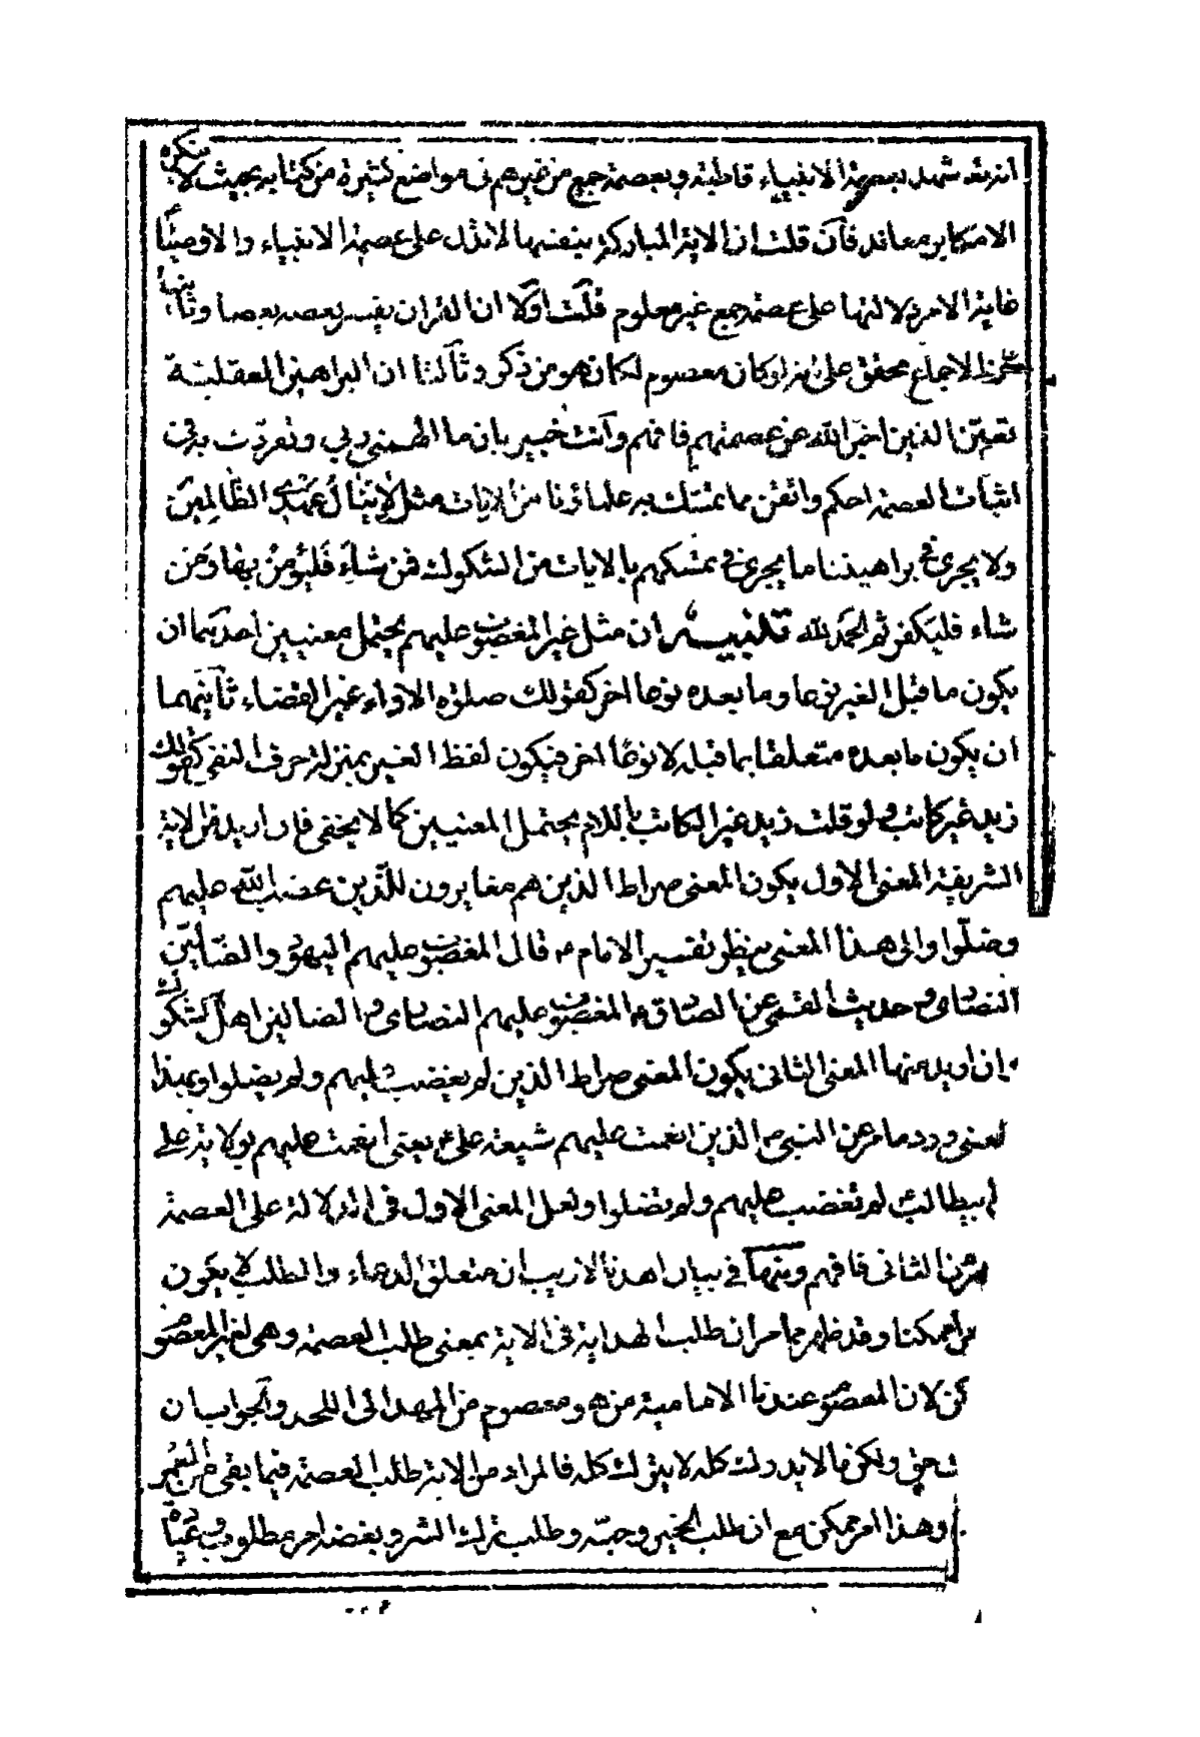 انه تعالى شهد بعصمة الانبياء قاطبة وبعصمة جمع من غيرهم في مواضع كثيرة من كتابه بحيث لا ينكره
الا مكابر معاند فان قلت ان الاية المباركة بنفسها لا تدل على عصمة الانبياء والاوصياء
غاية الامر دلالتها على عصمة جمع غير معلوم قلت اولا ان القران يفسر بعضه بعضا وثانيا
الاجماع محقق على انه لو كان معصوم لكان هو من ذكر وثالثا ان البراهين العقلية
تعين الذين اخبر الله عن عصمتهم فافهم وانت خبير بان ما الهمني ربي وتفردت به في
اثبات العصمة احكم واتقن مما تمسك به علماؤنا من الايات مثل لا ينال عهدي الظالمين
ولا يجري في براهيننا ما يجري في تمسكهم بالايات من الشكوك فمن شاء فليؤمن بها ومن
شاء فليكفر ثم الحمد لله تنبيه ان مثل غير المغضوب عليهم يحتمل معنيين احدهما ان
يكون ما قبل الغير نوعا وما بعده نوعا اخر كقولك صلوة الاداء غير القضاء ثانيهما
ان يكون ما بعده متعلقا بما قبله لا نوعا اخر فيكون لفظ الغير بمنزلة حرف النفي كقولك
زيد غير كاتب ولو قلت زيد غير الكاتب باللام يحتمل المعنيين كما لا يخفى فان اريد من الاية
الشريفة المعنى الاول يكون المعنى صراط الذين هم مغايرون للذين غضب الله عليهم
وضلوا والى هذا المعنى ينظر تفسير الامام ع قال المغضوب عليهم اليهود والضالين
النصارى وحديث القمي عن الصادق ع المغضوب عليهم النصارى والضالين اهل الشكوك
وان اريد منها المعنى الثاني يكون المعنى صراط الذين لم يغضب عليهم ولم يضلوا وبهذا
المعنى ورد ما عن النبي ص الذين انعمت عليهم شيعة علي ع يعني انعمت عليهم بولاية علي
ابن ابيطالب لم تغضب عليهم ولم يضلوا ولعل المعنى الاول في الدلالة على العصمة
من الثاني فافهم ومنها في بيان اهدنا لا ريب ان متعلق الدعاء والطلب لا يكون
ممكنا وقد ظهر مما مر ان طلب الهداية في الاية بمعنى طلب العصمة وهي لغير المعصوم
لان المعصوم عندنا الامامية من هو معصوم من المهد الى اللحد والجواب ان
حق ولكن ما لا يدرك كله لا يترك كله فالمراد من الاية طلب العصمة فيما بقى من العمر
وهذا امر ممكن مع ان طلب الخير وحبه وطلب ترك الشر وبغضه امر مطلوب